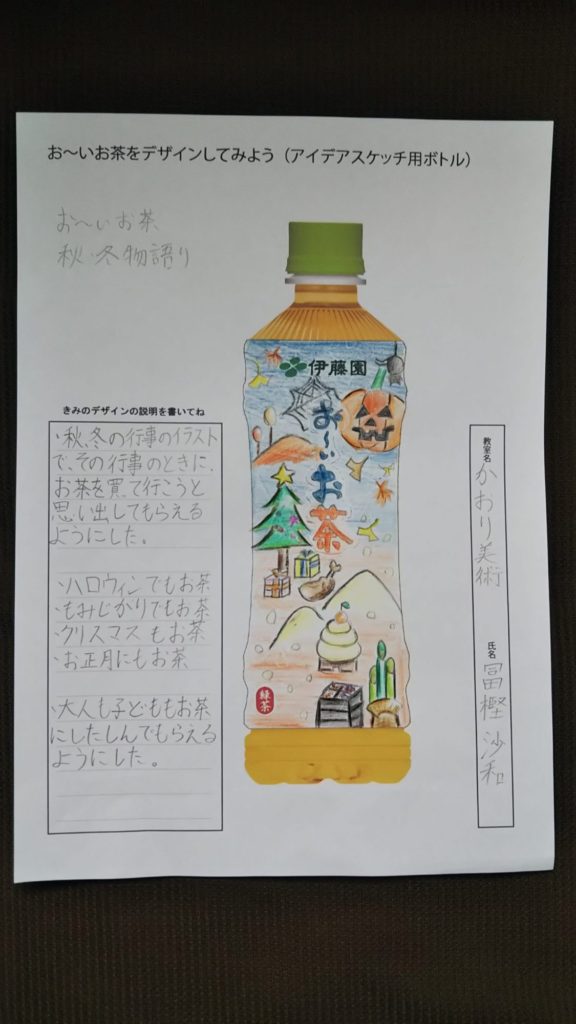 お～いお茶をデザインしてみよう（アイデアスケッチ用ボトル）
お～いお茶
秋、冬物語り
伊藤園
お～いお茶
緑茶
きみのデザインの説明を書いてね
・秋、冬の行事のイラスト
で、その行事のときに、
お茶を買って行こうと
思い出してもらえる
ようにした。
・ハロウィンでもお茶
・もみじがりでもお茶
・クリスマスもお茶
・お正月にもお茶
・大人も子どももお茶
にしたしんでもらえる
ようにした。
教室名
かおり美術
氏名
冨樫 沙和